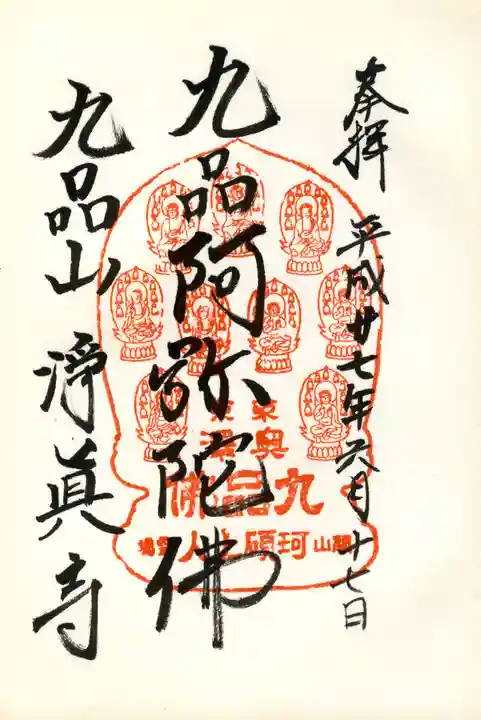 奉拝 平成廿七年六月十七日
九品阿弥陀佛
九品山 淨眞寺
東京
奥澤
九品佛
開山珂碩上人霊場